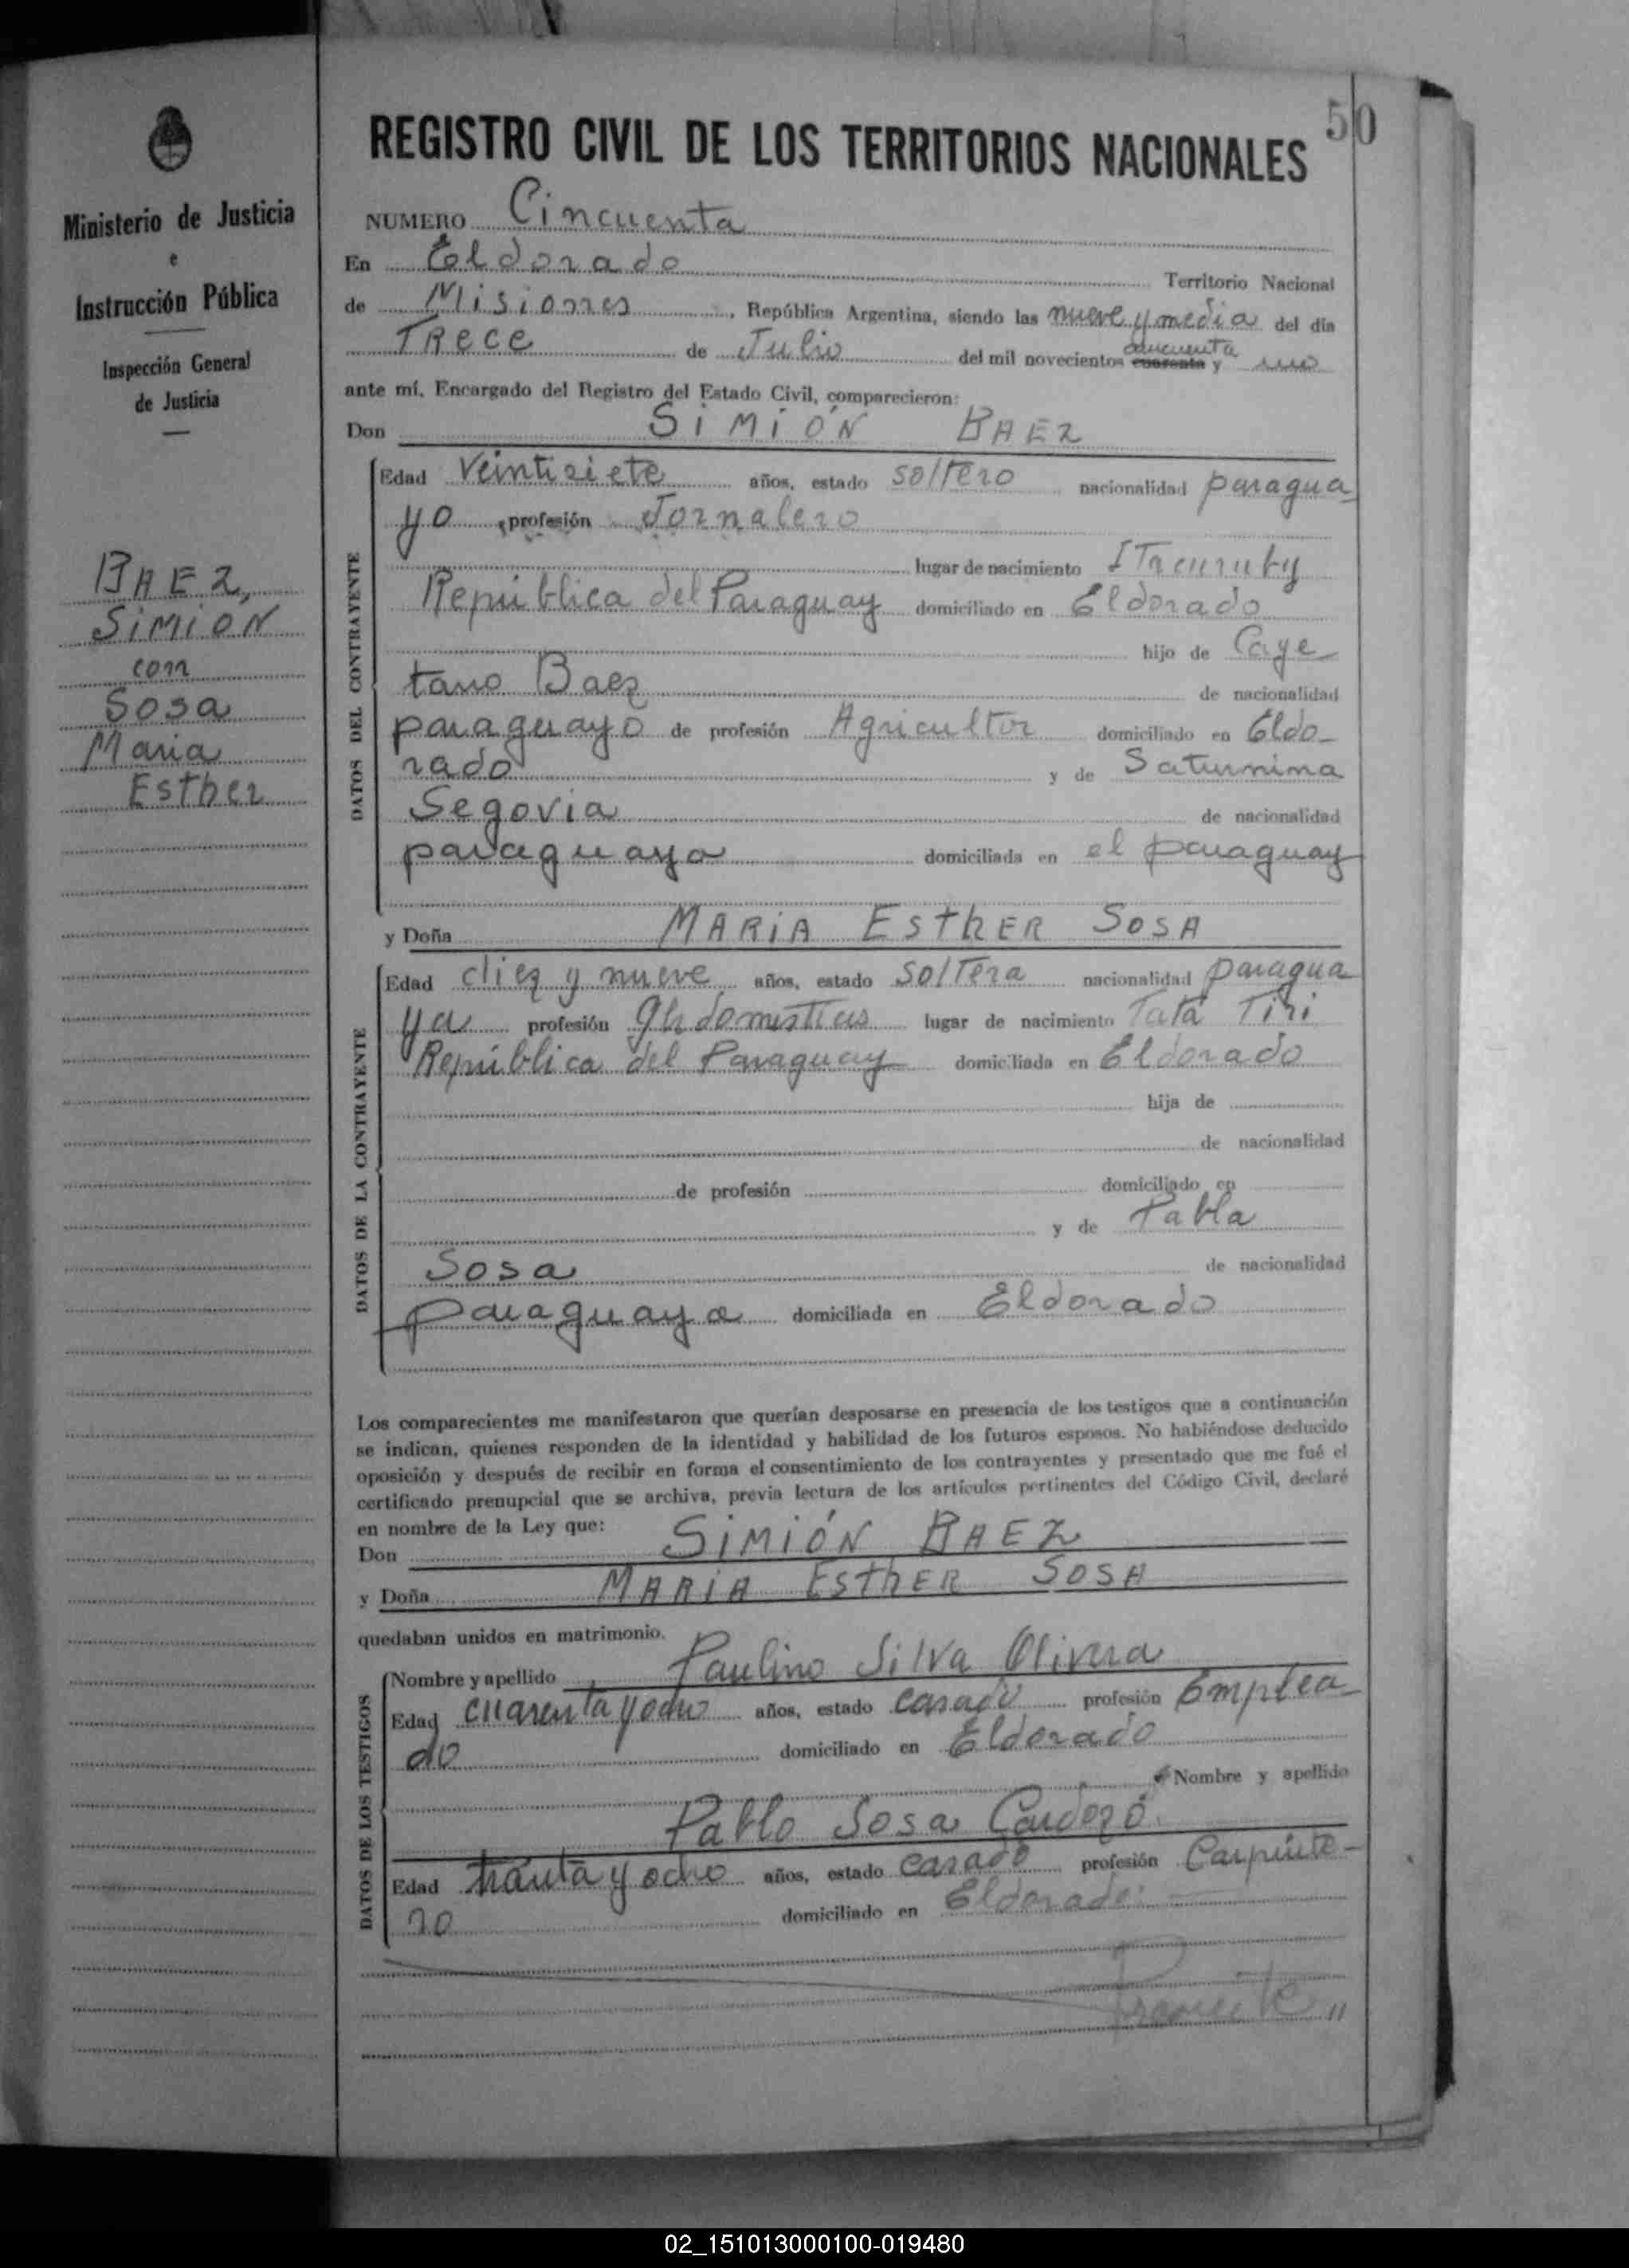 50
REGISTRO CIVIL DE LOS TERRITORIOS NACIONALES
Ministerio de Justicia
e
Instrucción Pública
Inspección General
de Justicia
BAEZ,
SIMION
con
Sosa
Maria
Esther
NUMERO Cincuenta
En Eldorado Territorio Nacional
de Misiones, República Argentina, siendo las nueve y media del día
Trece de Julio del mil novecientos cuarenta cincuenta y uno
ante mí, Encargado del Registro del Estado Civil, comparecieron:
Don SIMIÓN BAEZ
DATOS DEL CONTRAYENTE
Edad Veintisiete años, estado soltero nacionalidad paragua
yo, profesión Jornalero
lugar de nacimiento Itacuruby
República del Paraguay domiciliado en Eldorado
hijo de Caye
tano Baez de nacionalidad
paraguayo de profesión Agricultor domiciliado en Eldo-
rado y de Saturnina
Segovia de nacionalidad
paraguaya domiciliada en el paraguay
y Doña MARIA ESTHER SOSA
DATOS DE LA CONTRAYENTE
Edad diez y nueve años, estado soltera nacionalidad paragua
ya profesión domesticas lugar de nacimiento Tatá
República del Paraguay domiciliada en Eldorado
hija de
de nacionalidad
de profesión domiciliado en
y de Pabla
Sosa de nacionalidad
paraguaya domiciliada en Eldorado
Los comparecientes me manifestaron que querían desposarse en presencia de los testigos que a continuación
se indican, quienes responden de la identidad y habilidad de los futuros esposos. No habiéndose deducido
oposición y después de recibir en forma el consentimiento de los contrayentes y presentado que me fué el
certificado prenupcial que se archiva, previa lectura de los artículos pertinentes del Código Civil, declaré
en nombre de la Ley que:
Don SIMIÓN BAEZ
y Doña MARIA ESTHER SOSA
quedaban unidos en matrimonio.
DATOS DE LOS TESTIGOS
Nombre y apellido Paulino Silva Olivera
Edad cuarenta y ocho años, estado casado profesión Emplea-
do domiciliado en Eldorado
Nombre y apellido
Pablo Sosa Cardozo
Edad treinta y ocho años, estado casado profesión Carpinte-
ro domiciliado en Eldorado.
02_151013000100-019480